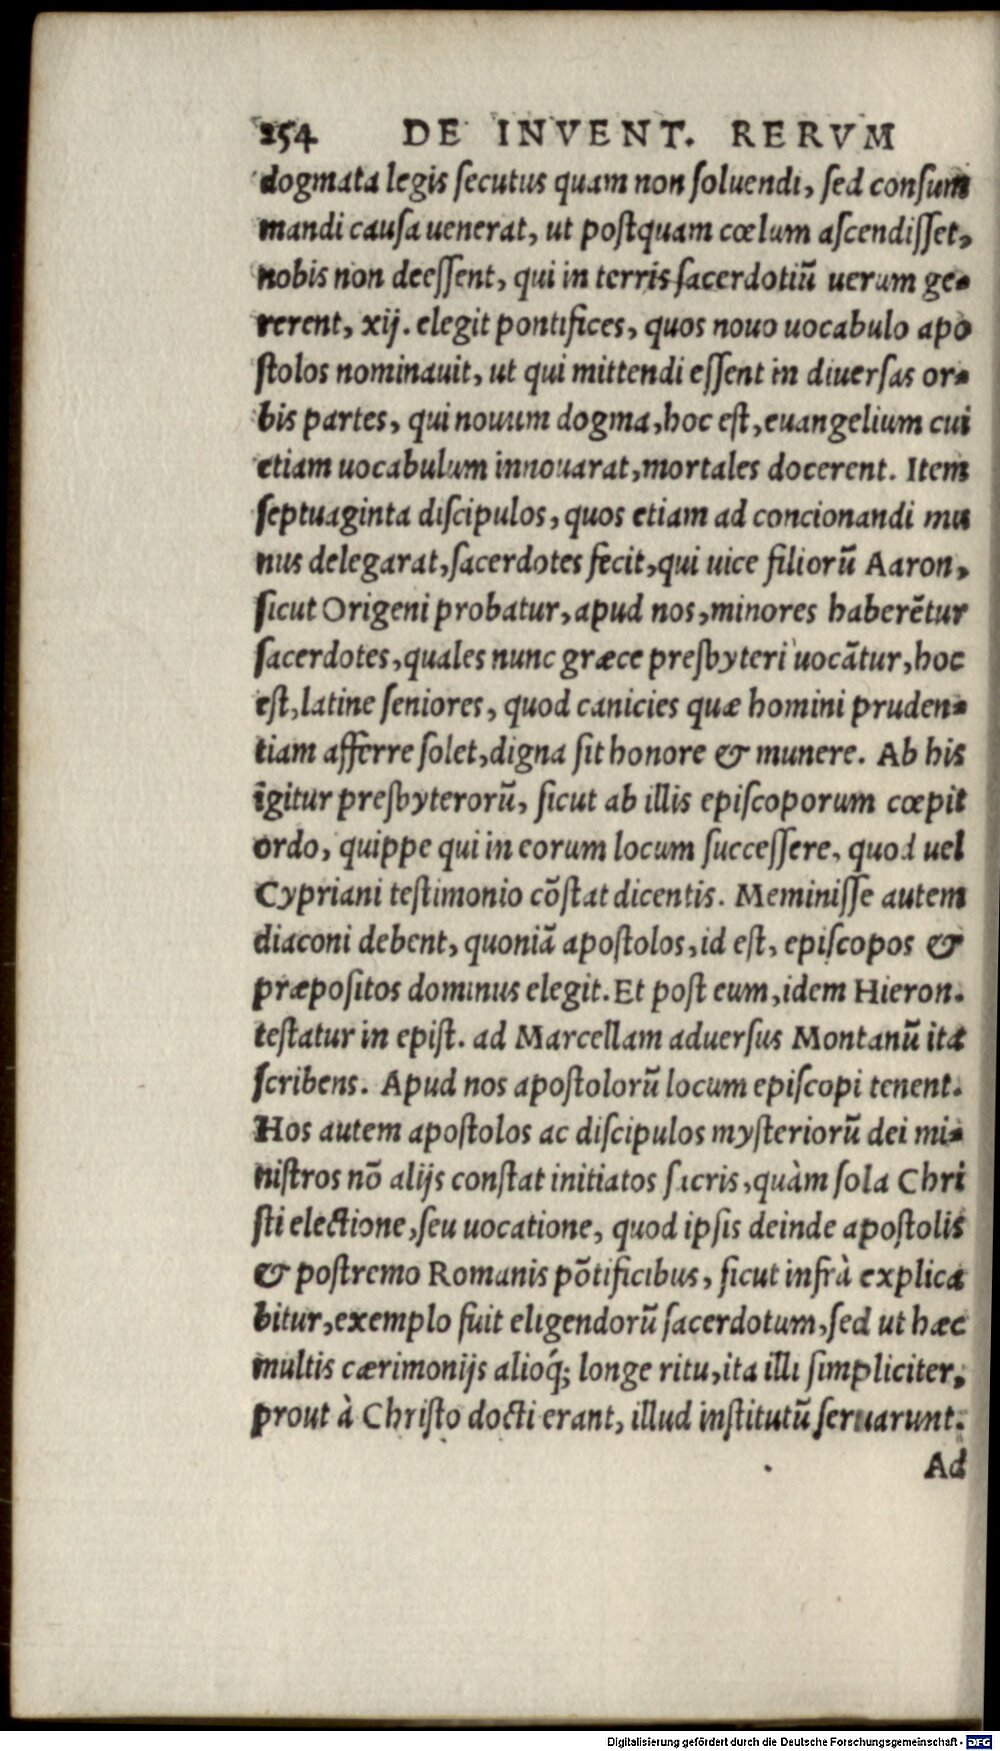 254 DE INVENT. RERVM
dogmata legis secutus quam non soluendi, sed consum
mandi causa uenerat, ut postquam cœlum ascendisset,
nobis non deessent, qui in terris sacerdotiũ uerum ge-
rerent, xij. elegit pontifices, quos nouo uocabulo apo
stolos nominauit, ut qui mittendi essent in diuersas or-
bis partes, qui nouum dogma, hoc est, euangelium cui
etiam uocabulum innouarat, mortales docerent. Item
septuaginta discipulos, quos etiam ad concionandi mu
nus delegarat, sacerdotes fecit, qui uice filiorũ Aaron,
sicut Origeni probatur, apud nos, minores haberẽtur
sacerdotes, quales nunc græce presbyteri uocãtur, hoc
est, latine seniores, quod canicies quæ homini pruden-
tiam afferre solet, digna sit honore & munere. Ab his
igitur presbyterorũ, sicut ab illis episcoporum cœpit
ordo, quippe qui in eorum locum successere, quod uel
Cypriani testimonio cõstat dicentis. Meminisse autem
diaconi debent, quoniã apostolos, id est, episcopos &
præpositos dominus elegit. Et post eum, idem Hieron.
testatur in epist. ad Marcellam aduersus Montanũ ita
scribens. Apud nos apostolorũ locum episcopi tenent.
Hos autem apostolos ac discipulos mysteriorũ dei mi-
nistros nõ alijs constat initiatos sacris, quàm sola Chri
sti electione, seu uocatione, quod ipsis deinde apostolis
& postremo Romanis põtificibus, sicut infrà explica
bitur, exemplo fuit eligendorũ sacerdotum, sed ut hæc
multis cærimonijs alioq́; longe ritu, ita illi simpliciter,
prout à Christo docti erant, illud institutũ seruarunt.
Ad
Digitalisierung gefördert durch die Deutsche Forschungsgemeinschaft - DFG